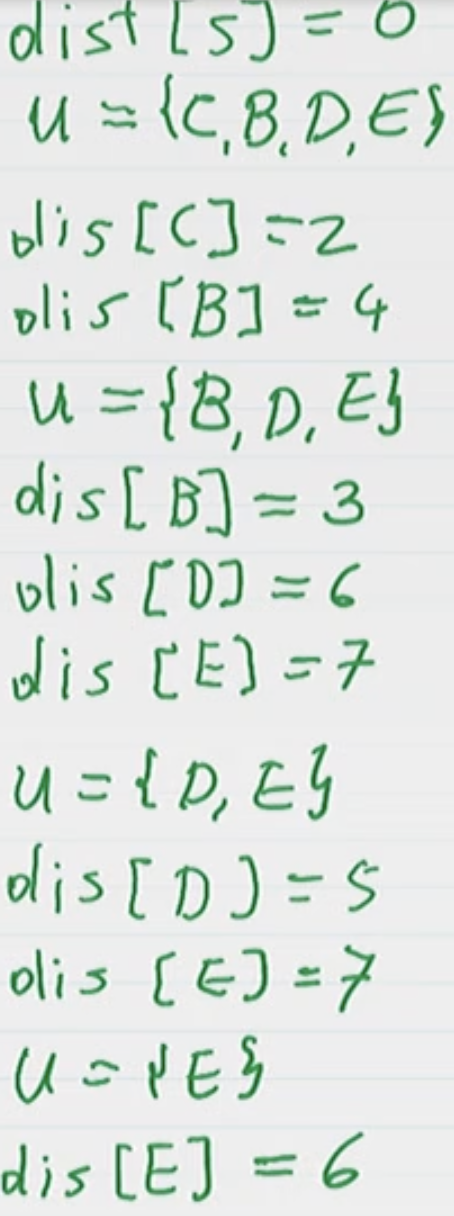 dist [S] = 0
U = {C, B, D, E}
dis [C] = 2
dis [B] = 4
U = {B, D, E}
dis [B] = 3
dis [D] = 6
dis [E] = 7
U = {D, E}
dis [D] = 5
dis [E] = 7
U = {E}
dis [E] = 6